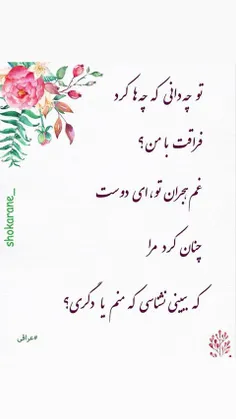 تو چه‌دانی که چه‌ها کرد
فراقت با من؟
غم هجران تو، ای دوست
چنان کرد مرا
که ببینی نشناسی که منم یا دگری؟
#عراقی
shokarane_